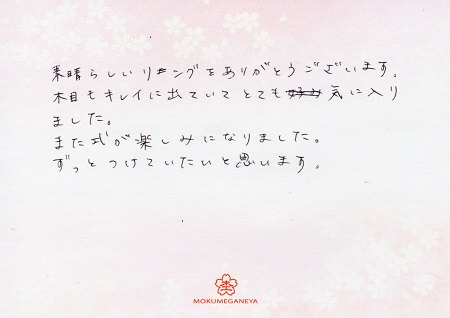 素晴らしいリングをありがとうございます。
木目もキレイに出ていてとても気に入り
ました。
また式が楽しみになりました。
ずっとつけていたいと思います。
MOKUMEGANEYA